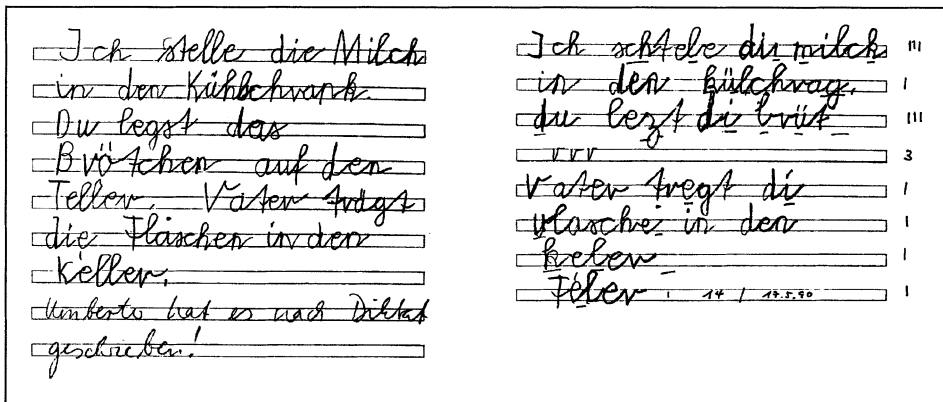 Ich stelle die Milch
in den Kühlschrank.
Du legst das
Brötchen auf den
Teller. Vater trägt
die Flaschen in den
Keller.
Umberto hat es nach Diktat
geschrieben!
Ich schtele di milch III
in den külchrag. I
du lezt di brüt III
r r r 3
Vater tregt di I
vlasche in den I
keler I
Feler : 14 / 17.5.90 I